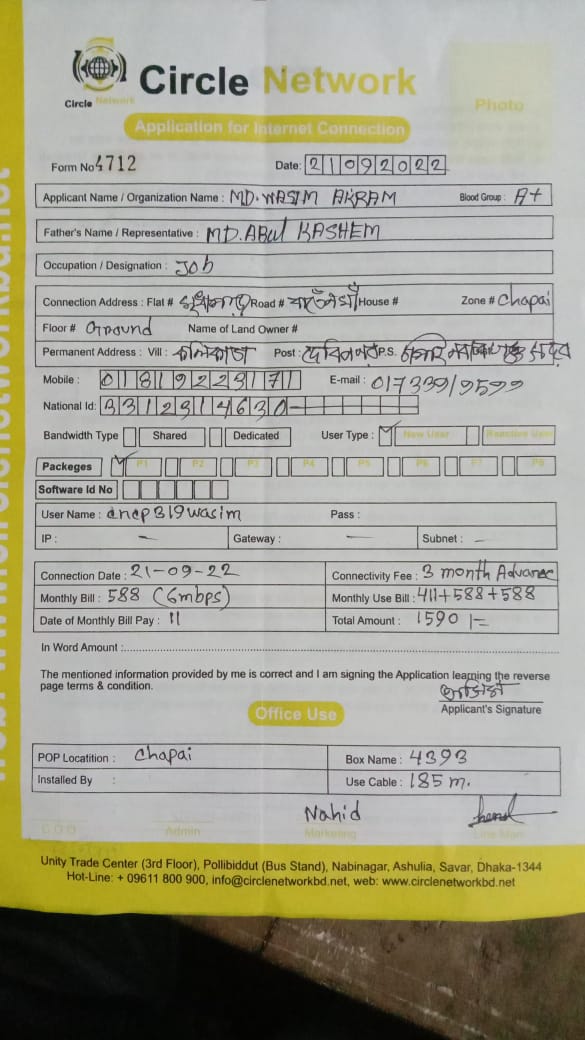 Circle Network
Circle Network
Photo
Application for Internet Connection
Form No 4712 Date: 21092022
Applicant Name / Organization Name : MD. WASIM AKRAM Blood Group : A+
Father's Name / Representative : MD. ABUl KASHEM
Occupation / Designation : Job
Connection Address : Flat # Road # House # Zone # Chapai
Floor # Ground Name of Land Owner #
Permanent Address : Vill : Post : P.S.
Mobile : 01819223171 E-mail :
National Id: 3312314630
Bandwidth Type Shared Dedicated User Type : New User Reactive User
Packeges P1 P2 P3 P4 P5 P6 P7 P8
Software Id No
User Name : cncp319wasim Pass :
IP : — Gateway : — Subnet : —
Connection Date : 21-09-22 Connectivity Fee : 3 month Advance
Monthly Bill : 588 (6mbps) Monthly Use Bill : 411+588+588
Date of Monthly Bill Pay : 11 Total Amount : 1590/=
In Word Amount :
The mentioned information provided by me is correct and I am signing the Application learning the reverse
page terms & condition.
Applicant's Signature
Office Use
POP Locatition : Chapai Box Name : 4393
Installed By : Use Cable : 185 m.
Nahid
C.O.O Admin Marketing Line Man
Unity Trade Center (3rd Floor), Pollibiddut (Bus Stand), Nabinagar, Ashulia, Savar, Dhaka-1344
Hot-Line: + 09611 800 900, info@circlenetworkbd.net, web: www.circlenetworkbd.net